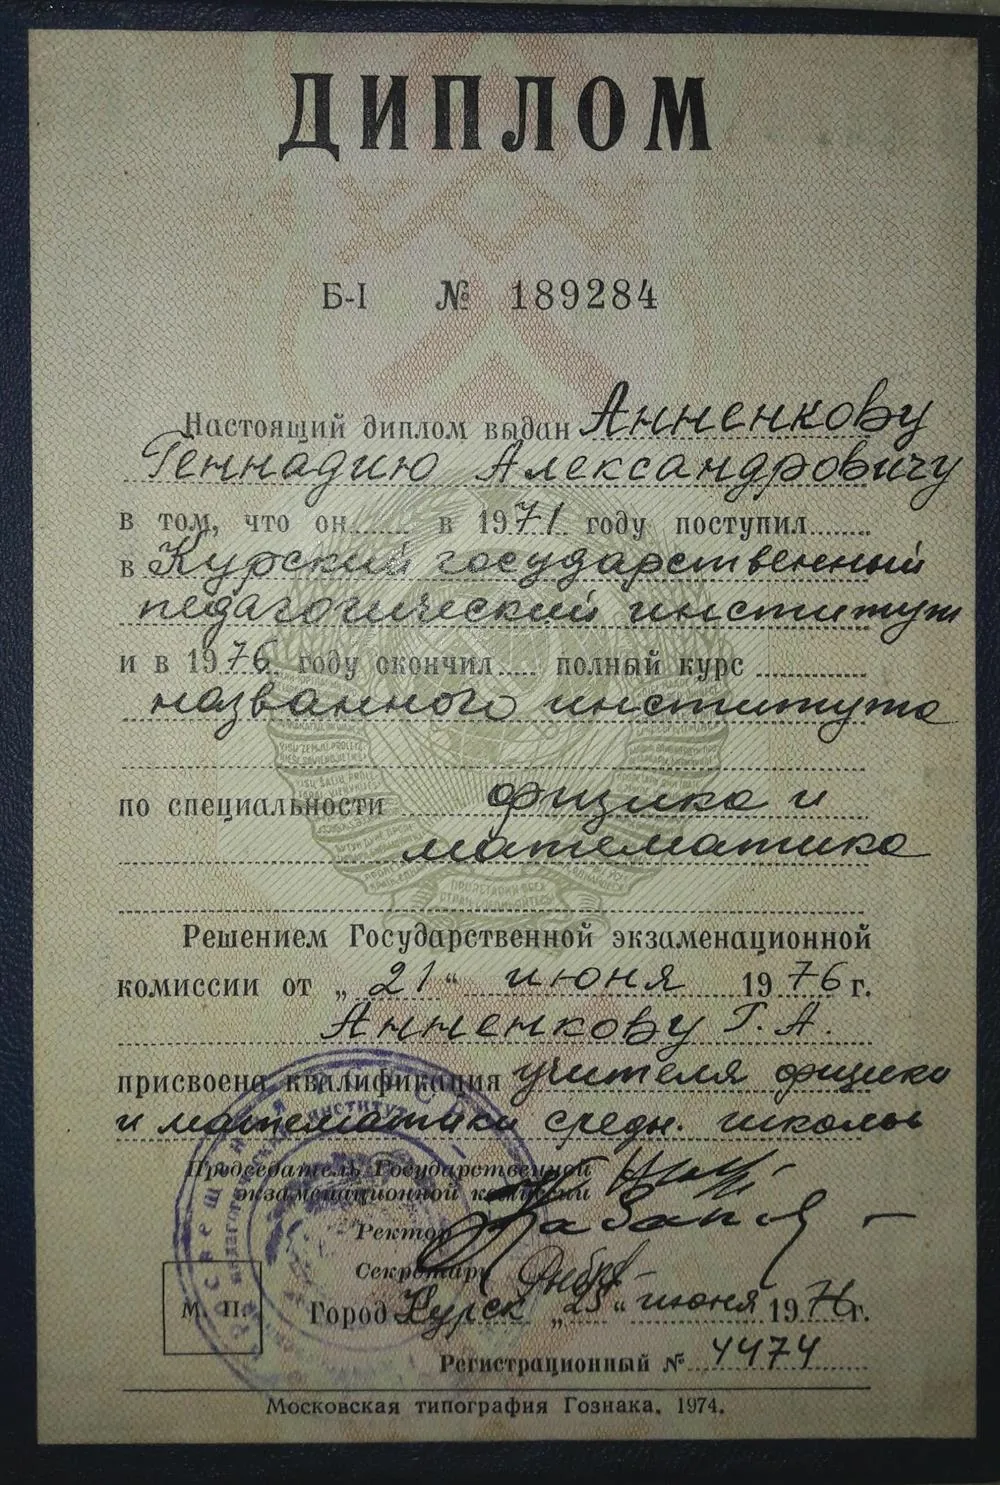 ДИПЛОМ
Б-I № 189284
Настоящий диплом выдан Анненкову
Геннадию Александровичу
в том, что он в 1971 году поступил
в Курский государственный
педагогический институт
и в 1976 году окончил полный курс
названного института
по специальности физика и
математика
Решением Государственной экзаменационной
комиссии от „21“ июня 1976 г.
Анненкову Г. А.
присвоена квалификация учителя физики
и математики средн. школы
Председатель Государственной
экзаменационной комиссии
Ректор
Секретарь
М. П. Город Курск „23“ июня 1976 г.
Регистрационный № 4474
Московская типография Гознака. 1974.